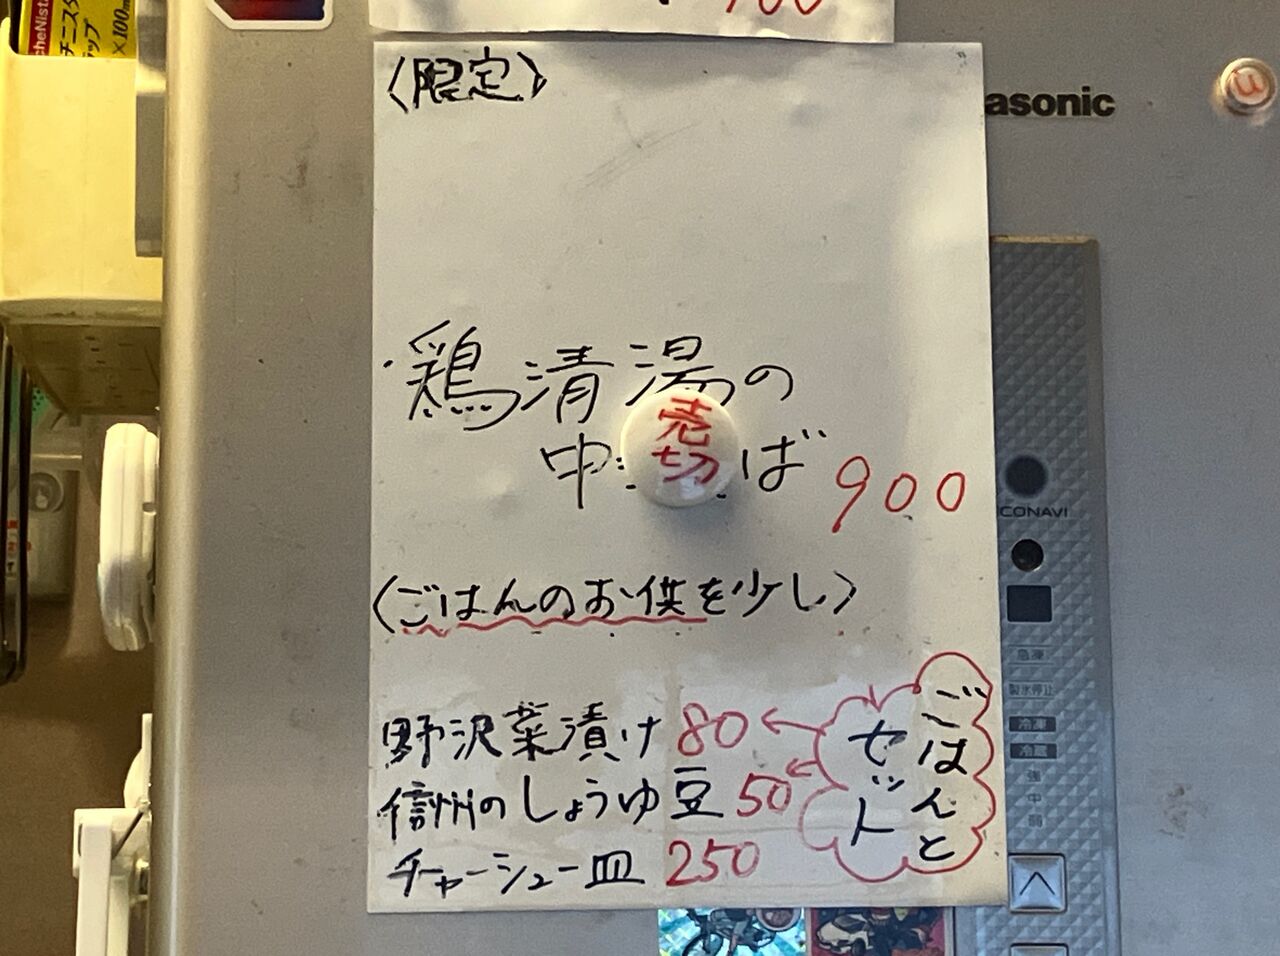 チニスタ
ラップ
×100m
〈限定〉
asonic
・鶏清湯の
中 ば 900
売切
CONAVI
〈ごはんのお供を少し〉
急凍
製氷停止
冷凍
冷蔵
強
中
弱
野沢菜漬け 80
信州のしょうゆ豆 50
チャーシュー皿 250
ごはんと
セット